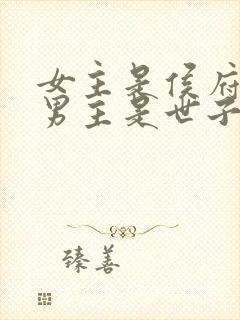 女主是侯府
男主是世子
臻善